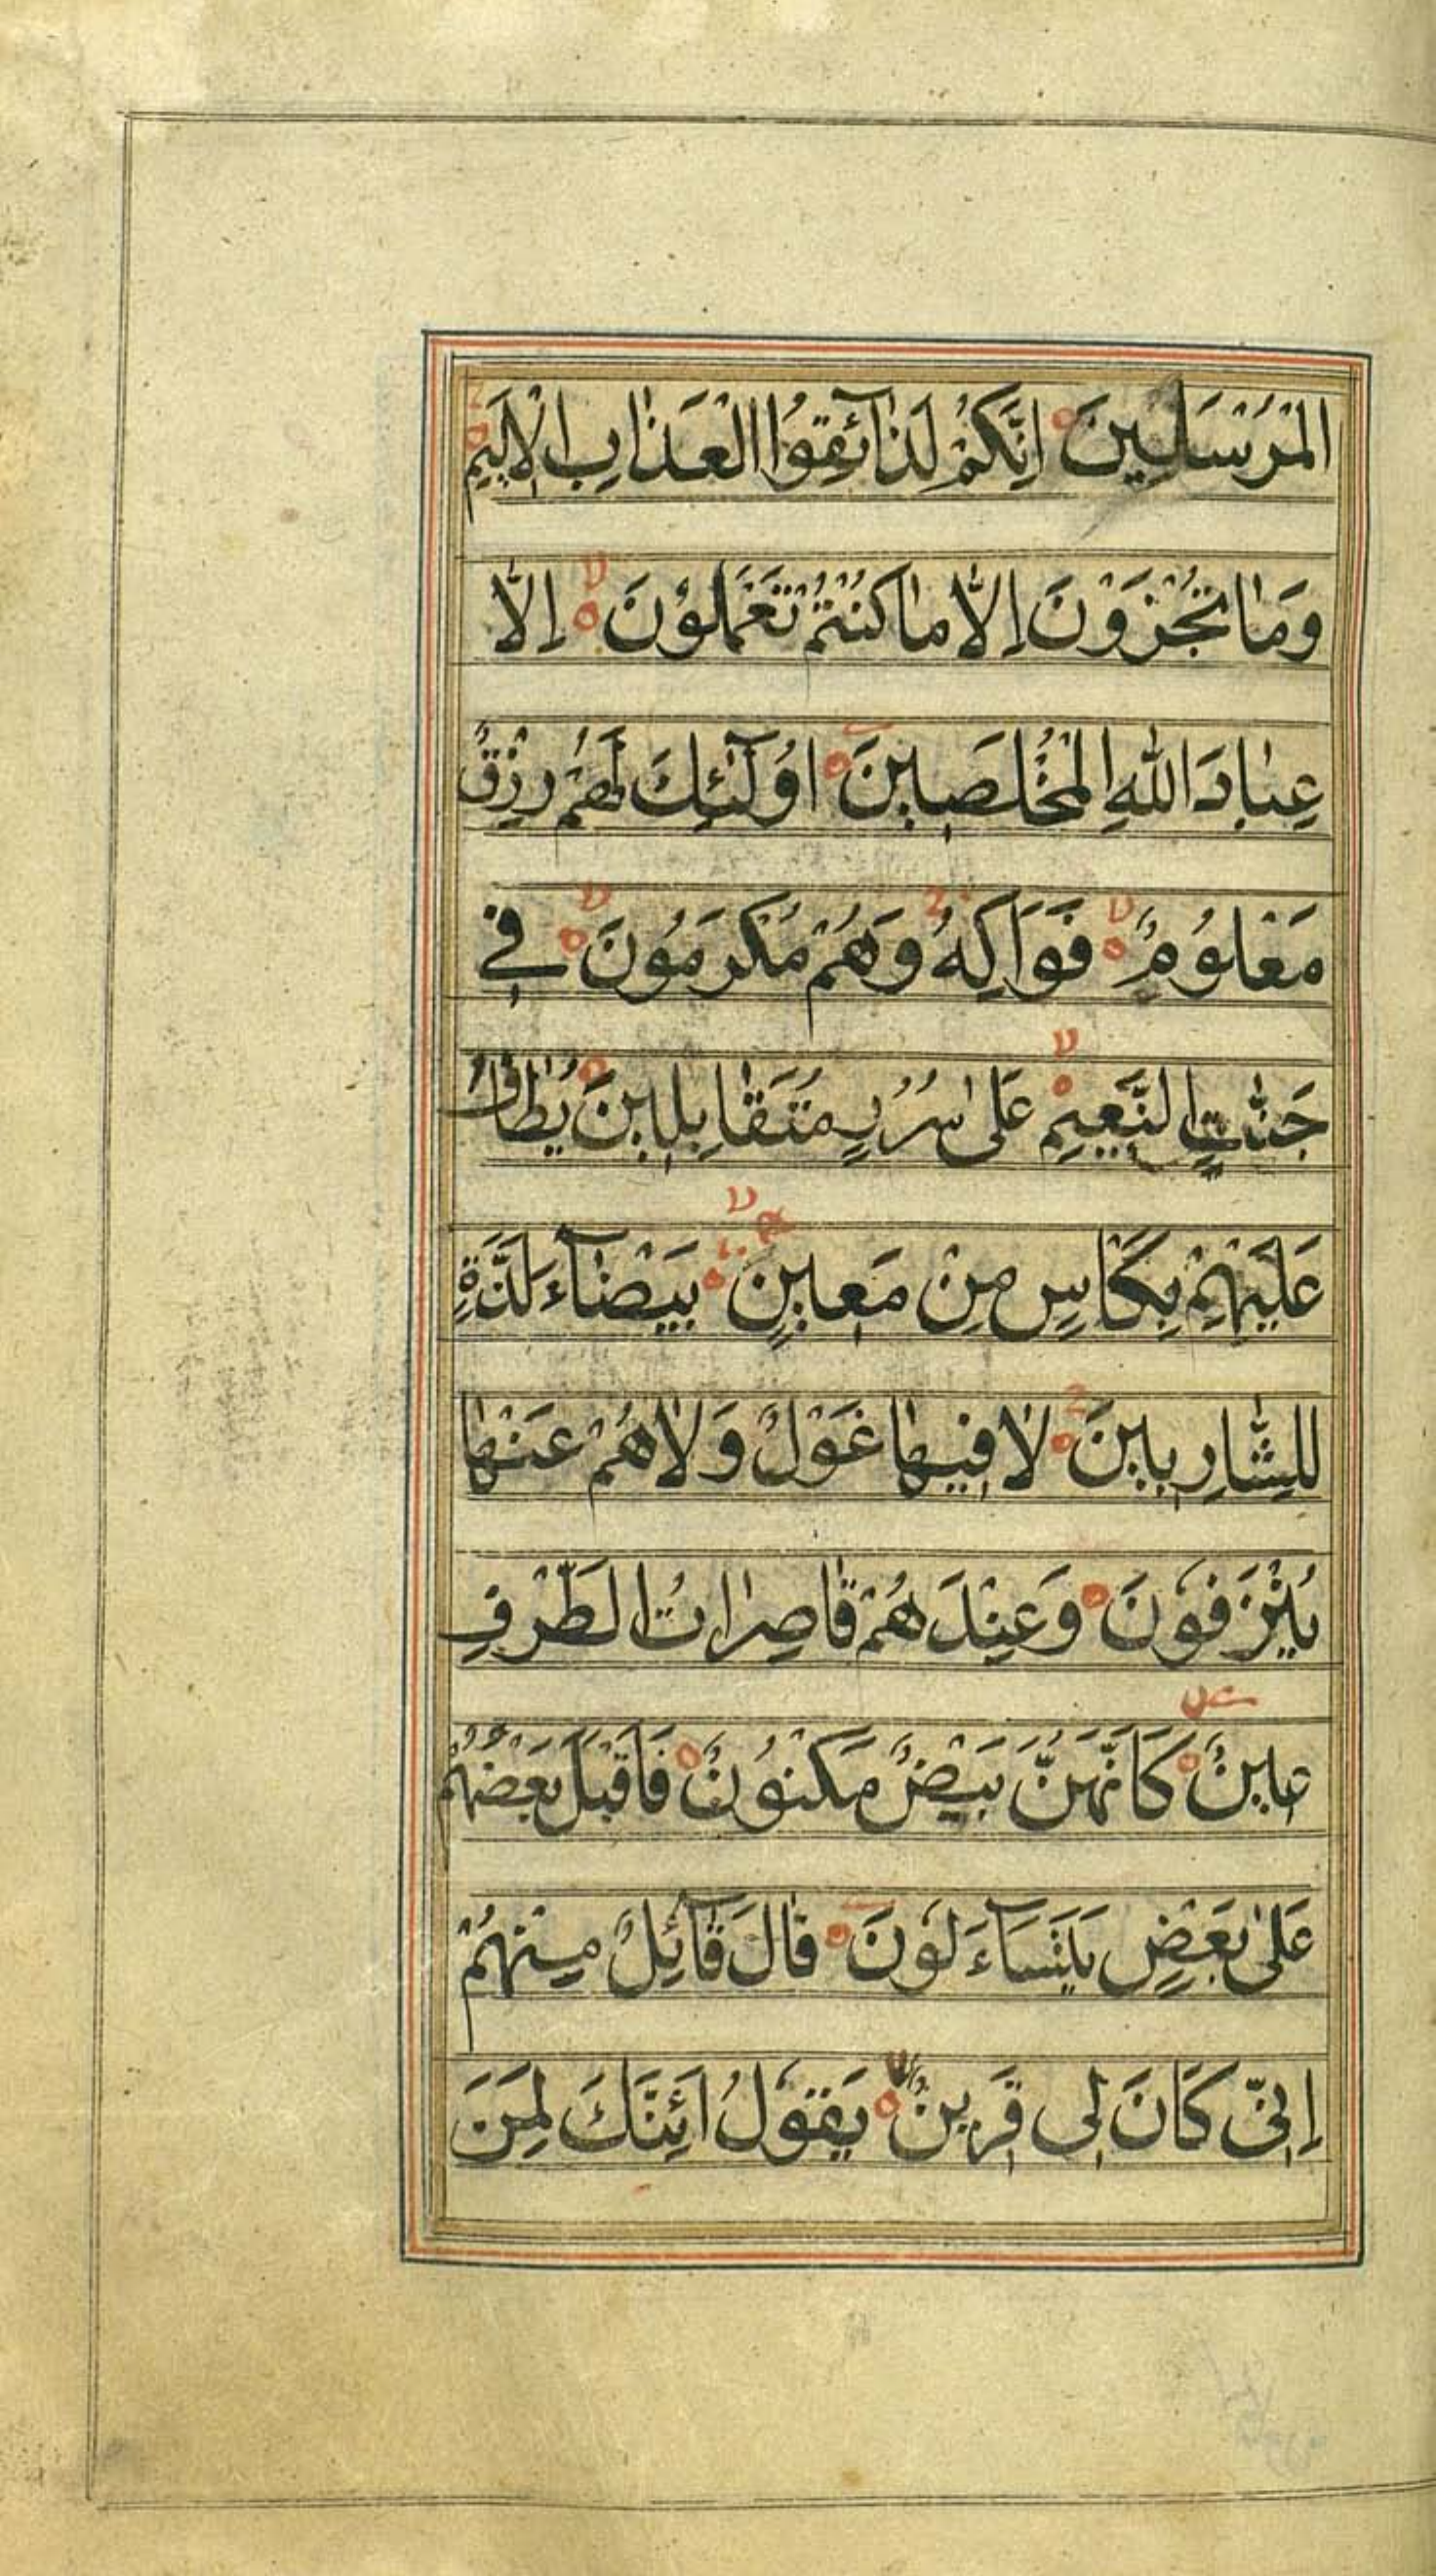 الْمُرْسَلِينَ اِنَّكُمْ لَذَآئِقُوا الْعَذَابِ الْاَلِيمِ
وَمَا تُجْزَوْنَ اِلَّا مَا كُنْتُمْ تَعْمَلُونَ اِلَّا
عِبَادَ اللهِ الْمُخْلَصِينَ اُولَٓئِكَ لَهُمْ رِزْقٌ
مَعْلُومٌ فَوَاكِهُ وَهُمْ مُكْرَمُونَ فِي
جَنَّاتِ النَّعِيمِ عَلٰى سُرُرٍ مُتَقَابِلِينَ يُطَافُ
عَلَيْهِمْ بِكَاْسٍ مِنْ مَعِينٍ بَيْضَآءَ لَذَّةٍ
لِلشَّارِبِينَ لَا فِيهَا غَوْلٌ وَلَا هُمْ عَنْهَا
يُنْزَفُونَ وَعِنْدَهُمْ قَاصِرَاتُ الطَّرْفِ
عِينٌ كَاَنَّهُنَّ بَيْضٌ مَكْنُونٌ فَاَقْبَلَ بَعْضُهُمْ
عَلٰى بَعْضٍ يَتَسَآءَلُونَ قَالَ قَآئِلٌ مِنْهُمْ
اِنِّي كَانَ لِي قَرِينٌ يَقُولُ اَئِنَّكَ لَمِنَ